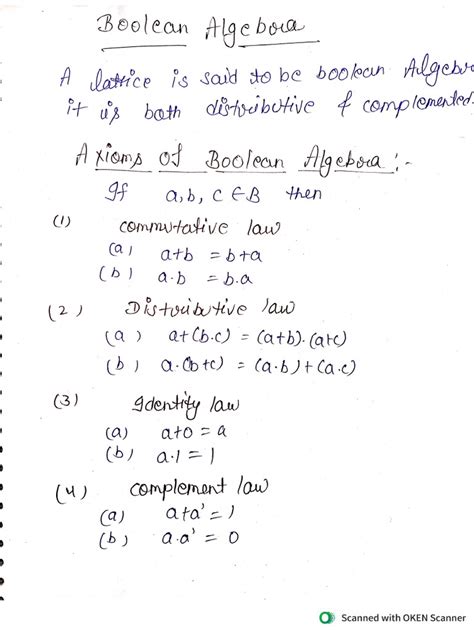 Boolean Algebra
A lattice is said to be boolean Algebra
it is both distributive & complemented.
Axioms of Boolean Algebra :-
If a, b, c ∈ B then
(1) commutative law
(a) a+b = b+a
(b) a.b = b.a
(2) Distributive law
(a) a+(b.c) = (a+b).(a+c)
(b) a.(b+c) = (a.b)+(a.c)
(3) Identity law
(a) a+0 = a
(b) a.1 = 1
(4) complement law
(a) a+a' = 1
(b) a.a' = 0
Scanned with OKEN Scanner